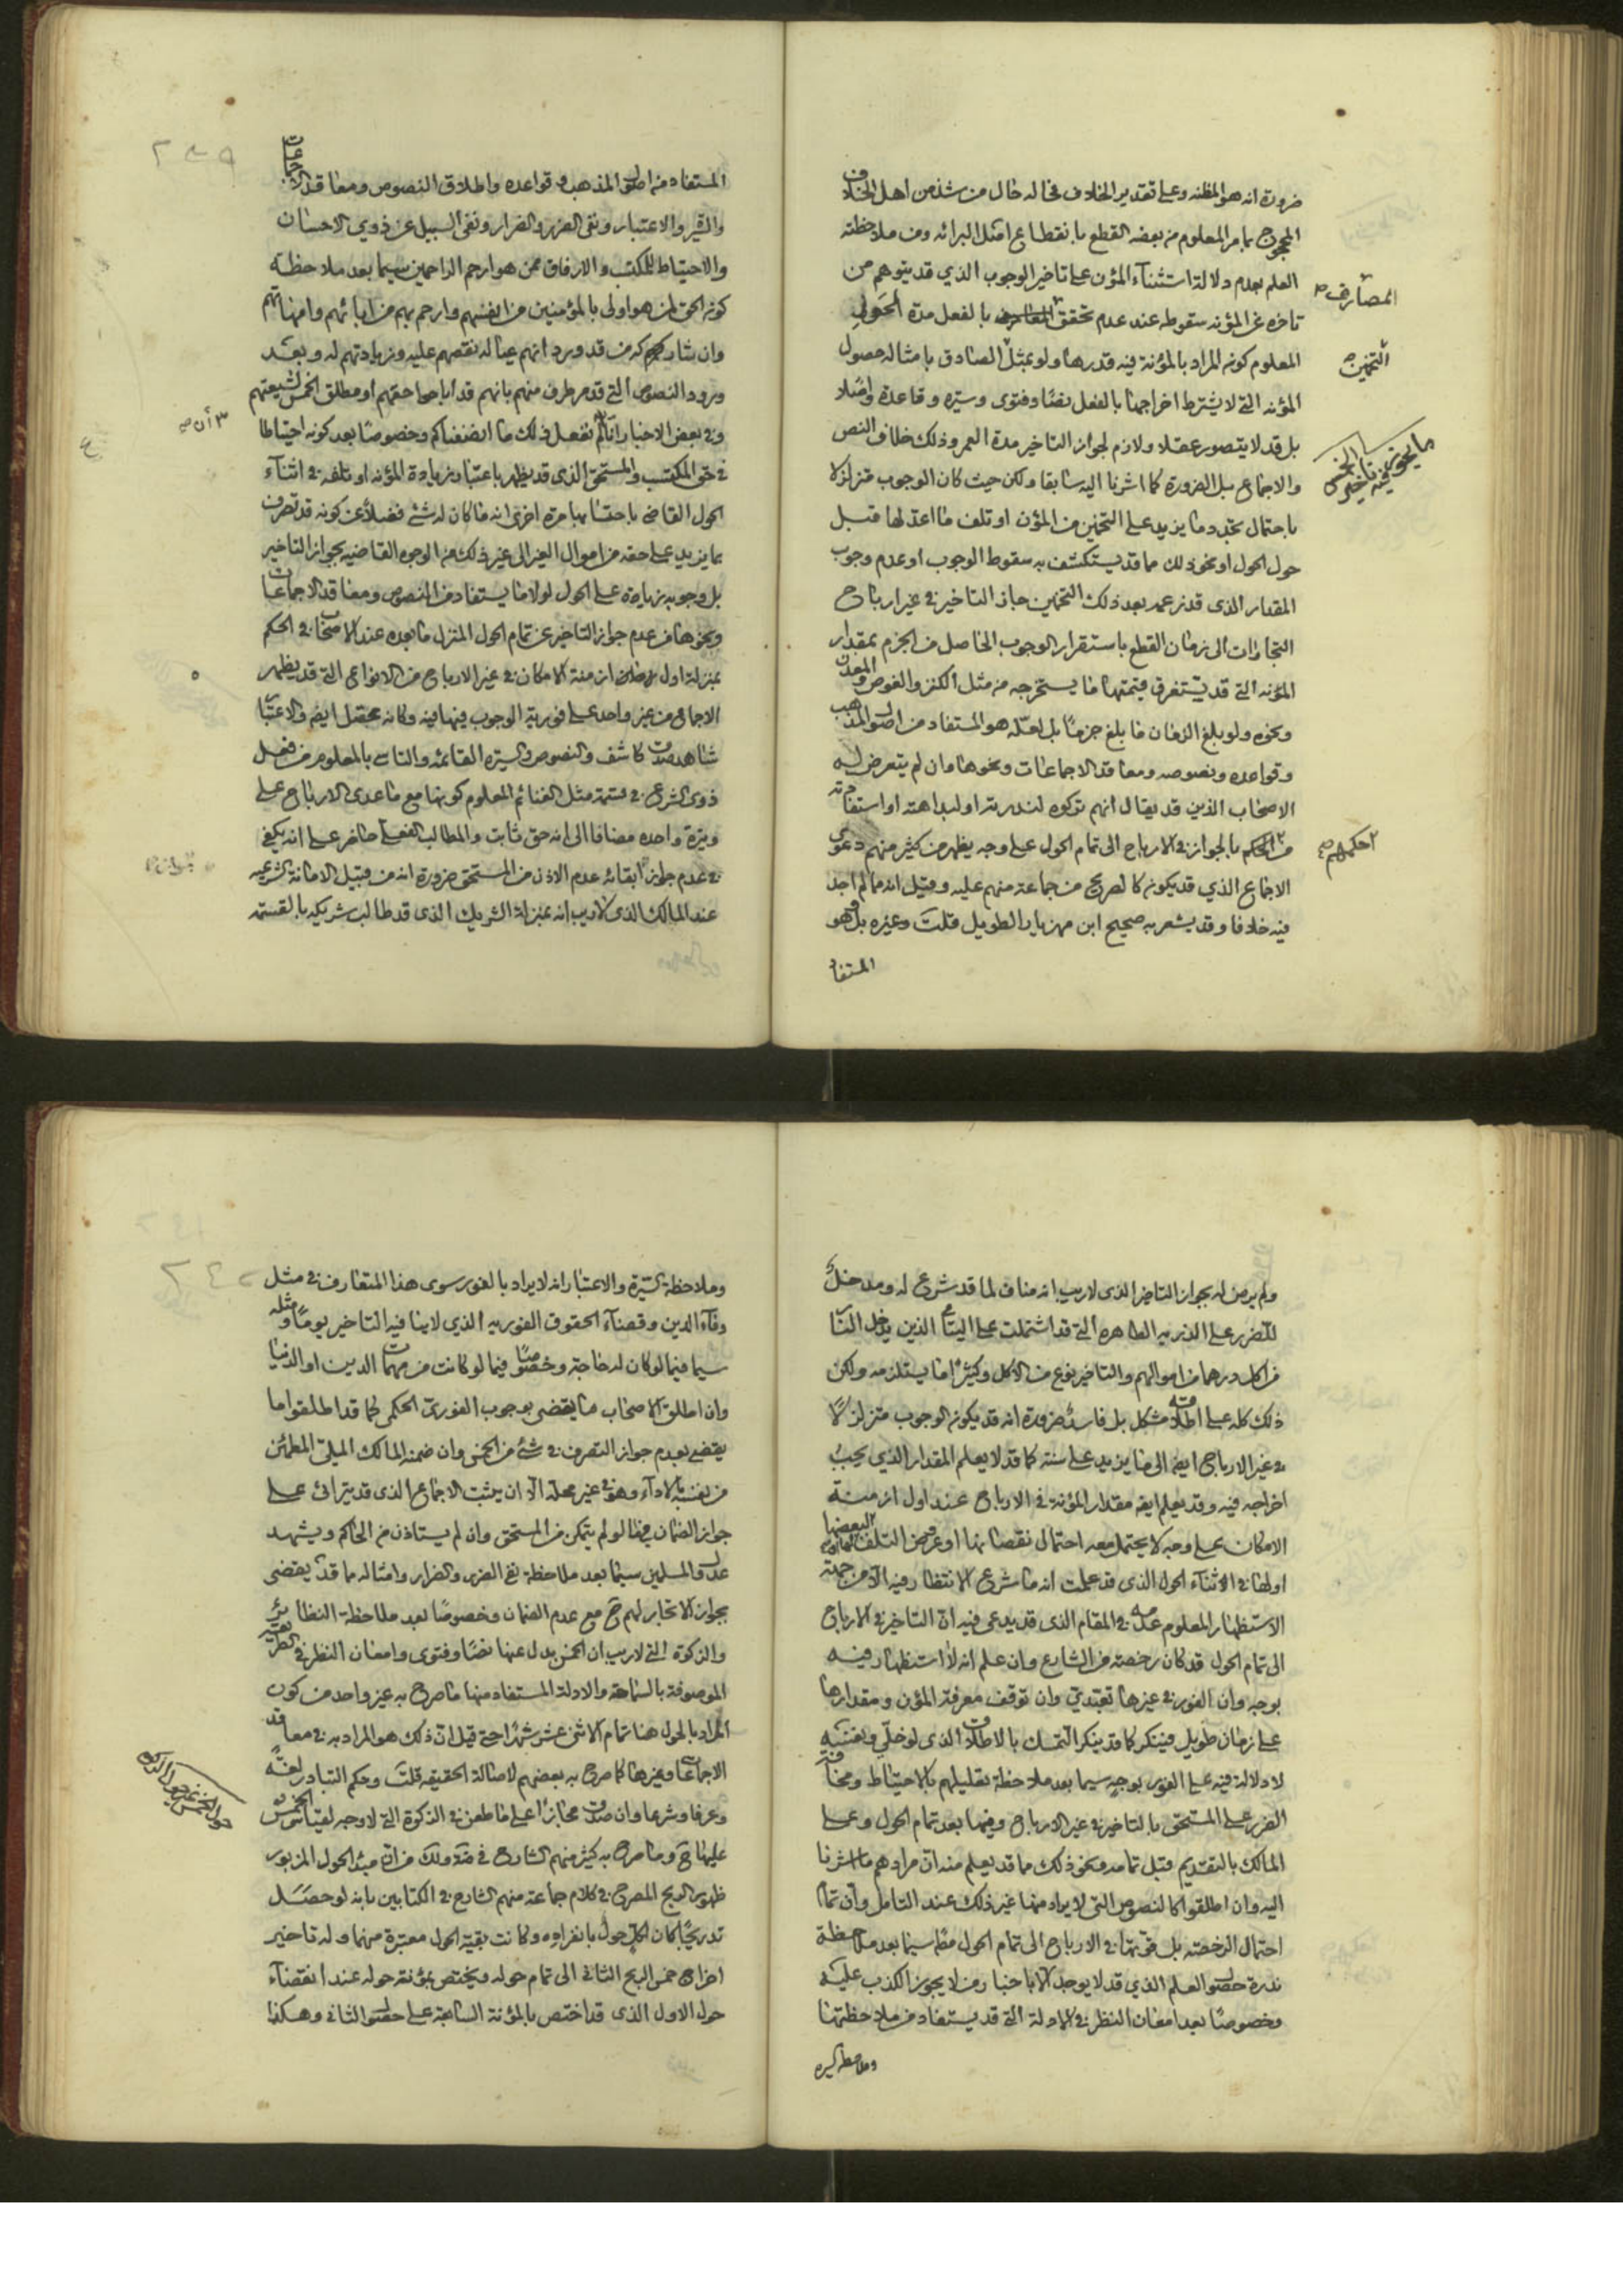 ضرورة انه هو المظنه وعلى تقدير الخلاف فحاله حال من شذ من اهل الخلاف
المحجوج بامر المعلوم من بعضه القطع بانقطاع اصل البرائه ومن ملاحظته
العلم بعدم دلالة استثناء المؤن على تاخير الوجوب الذي قد يتوهم من
المصارف
تاخره عن المؤنه سقوطه عند عدم تحقق بالفعل مدة الحول
المعلوم كونه المراد بالمؤنة فيه قدرها ولو بمثل الصادق بامثاله حصول
التخمين
المؤنه التي لا يشترط اخراجها بالفعل نصًا وفتوى وسيره وقاعدة واصلا
بل قد لا يتصور عقلا ولازم لجواز التاخير مدة العمر وذلك خلاف النص
ما يجوز فيه تاخير الخمس
والاجماع بل الضرورة كما اشرنا اليه سابقا ولكن حيث كان الوجوب متزلزلا
باحتمال تجدد ما يزيد على التخمين من المؤن او تلف ما اعد لها قبل
حول الحول او نحو ذلك مما قد يستكشف به سقوط الوجوب او عدم وجوب
المقدار الذي قد زعمه بعد ذلك التخمين جاز التاخير في غير ارباح
التجارات الى زمان القطع باستقرار الوجوب الحاصل من الجزم بمقدار
المؤنه التي قد يستغرق قيمتها ما يستخرجه من مثل الكنز والغوص والمعدن
ونحوه ولو بلغ الزمان ما بلغ جزمًا بل لعله هو المستفاد من اصول المذهب
وقواعده ونصوصه ومعاقد الاجماعات ونحوها وان لم يتعرض له
الاصحاب الذين قد يقال انهم تركوه لندرته او لبداهته او استفادته
احكمهم
من الحكم بالجواز في الارباح الى تمام الحول على وجه يظهر من كثير منهم دعوى
الاجماع الذي قد يكون كالصريح من جماعة منهم عليه وقيل انه مما لم اجد
فيه خلافا وقد يشعر به صحيح ابن مهزيار الطويل قلت وغيره بل هو
المستفاد
٢٣٩
المستفاد من اصول المذهب وقواعده واطلاق النصوص ومعاقد الاجماعات
والسير والاعتبار ونفي الضرر والضرار ونفي السبيل عن ذوي الاحسان
والاحتياط للمكتسب والارفاق ممن هو ارحم الراحمين سيما بعد ملاحظة
كون الحق لمن هو اولى بالمؤمنين من انفسهم وارحم بهم من ابائهم وامهاتهم
وان شاركهم من قد ورد انهم عياله نقصهم عليه وزيادتهم له وبعد
ورود النصوص التي قد مر طرف منهم بانهم قد اباحوا حقهم او مطلق الخمس لشيعتهم
وفي بعض الاخبار انا لم نفعل ذلك ما انصفناكم وخصوصًا بعد كونه احتياطا
في حق المكتسب والمستحق الذي قد يظهر باعتبار زيادة المؤنه او تلفه في اثناء
الحول القاضي باحتسابها مرة اخرى انه ما كان له شئ فضلاً عن كونه قد تصرف
بما يزيد على حقه من اموال الغير الى غير ذلك من الوجوه القاضيه بجواز التاخير
بل وجوبه زيادة على الحول لولا ما يستفاد من النصوص ومعاقد الاجماعات
ونحوها من عدم جواز التاخير عن تمام الحول المنزل ما بعده عند الاصحاب في الحكم
بمنزلة اول ازمنة الامكان في غير الارباح من الانواع التي قد يظهر
الاجماع من غير واحد على فورية الوجوب فيها فيه وكانه محتمل ايضا والاعتبار
شاهد صدق كاشف والنصوص والسيره القائمه والتاسي بالمعلوم من فعل
ذوي الشرع في قسمة مثل الغنائم المعلوم كونها مع ما عدى الارباح على
وتيرة واحده مضافا الى انه حق ثابت والمطالب الفعلي حاضر على انه يكفي
في عدم جواز ابقائه عدم الاذن من المستحق ضرورة انه من قبيل الامانة الشرعيه
عند المالك الذي لا ريب انه بمنزلة الشريك الذي قد طالب شريكه بالقسمة
ولم يرض له بجواز التاخير الذي لا ريب انه مناف لما قد شرع له ومدخل
للضرر على الذريه الطاهره التي قد اشتملت على اليتامى الذين يدخل النار
من اكل درهما من اموالهم والتاخير نوع من الاكل وكثيرًا ما يستلزمه ولكن
ذلك كله على اطلاقه مشكل بل فاسد ضرورة انه قد يكون الوجوب متزلزلاً
في غير الارباح ايضا الى ما يزيد على سنة كما قد لا يعلم المقدار الذي يجب
اخراجه فيه وقد يعلم ايضا مقدار المؤنة في الارباح عند اول ازمنة
الامكان على وجه لا يحتمل معه احتمال نقصانها او عروض التلف لبعضها
او لها في اثناء الحول الذي قد علمت انه ما شرع الانتظار فيه الا من جهة
الاستظهار المعلوم عدمه في المقام الذي قد يدعى فيه ان التاخير في الارباح
الى تمام الحول قد كان رخصته من الشارع وان علم انه لا استظهار فيه
بوجه وان الفور في غيرها تعبدي وان توقف معرفة المؤن ومقدارها
على زمان طويل فينكر كما قد ينكر التمسك بالاطلاق الذي لو خلي ونفسه
لا دلالة فيه على الفور بوجه سيما بعد ملاحظة تعليلهم بالاحتياط ومخافة
الضرر على المستحق بالتاخير في غير الارباح وفيها بعد تمام الحول وعلى
المالك بالتقديم قبل تمامه ونحو ذلك مما قد يعلم منه ان مرادهم ما اشرنا
اليه وان اطلقوا كالنصوص التي لا يراد منها غير ذلك عند التامل وان تم
احتمال الرخصة بل قوتها في الارباح الى تمام الحول مطلقا سيما بعد ملاحظة
ندرة حصول العلم الذي قد لا يوجد الا باخبار من لا يجوز الكذب عليه
وخصوصًا بعد امعان النظر في الادلة التي قد يستفاد من ملاحظتها
وملاحظة السيره
٢٤٠
وملاحظة السيرة والاعتبار انه لا يراد بالفور سوى هذا المتعارف في مثل
وفاء الدين وقضاء الحقوق الفوريه الذي لا ينافيه التاخير يومًا ومثله
سيما فيما لو كان له حاجة وخصوصًا فيما لو كانت من مهمات الدين او الدنيا
وان اطلق الاصحاب ما يقضي بوجوب الفورية الحكمي كما قد اطلقوا ما
يقضي بعدم جواز التصرف في شئ من الخمس وان ضمنه المالك الملي المطمئن
من نفسه بالاداء وهو في غير محله الا ان يثبت الاجماع الذي قد يترائى على
جواز الضمان فيما لو لم يتمكن من المستحق وان لم يستاذن من الحاكم ويشهد
عدول المسلمين سيما بعد ملاحظة نفي الضرر والضرار وامثاله مما قد يقضي
بجواز الاتجار لهم ح مع عدم الضمان وخصوصًا بعد ملاحظة النظائر
والزكوة التي لا ريب ان الخمس بدل عنها نصًا وفتوى وامعان النظر في الطريقة
الموصوفة بالسماحة والادلة المستفاد منها ما صرح به غير واحد من كون
المراد بالحول هنا تمام الاثنى عشر شهرًا حتى قيل ان ذلك هو المراد به في معاقد
الاجماعات وغيرها كما صرح به بعضهم لاصالة الحقيقه قلت وحكم التبادر لغةً
حول الخمس غير حول الزكوة
وعرفا وشرعا وان صدق مجازًا على ما طعن في الزكوة التي لا وجه لقياس الخمس
عليها ح وما صرح به كثير منهم الشارح في ولك من ان مبدء الحول المزبور
ظهور الربح المصرح في كلام جماعة منهم الشارح في الكتابين بانه لو حصل
تدريجًا كان لكل حول بانفراده وكانت بقية الحول معتبرة منهما وله تاخير
اخراج خمس الربح الثاني الى تمام حوله ويختص بمؤنة حوله عند انقضاء
حول الاول الذي قد اختص بالمؤنة السابقة على حصول الثاني وهكذا